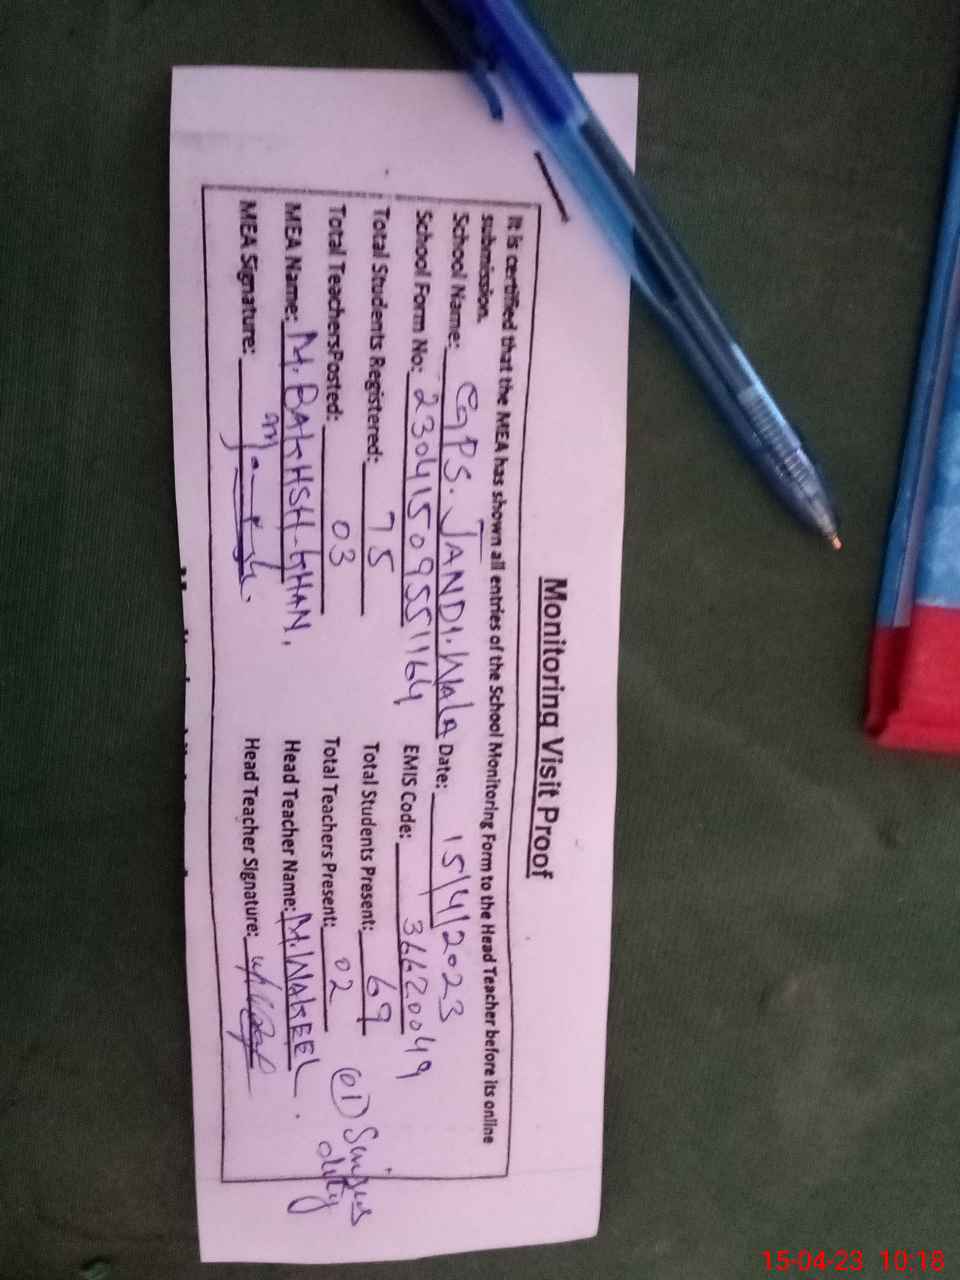 Monitoring Visit Proof
It is certified that the MEA has shown all entries of the School Monitoring Form to the Head Teacher before its online
submission.
School Name: GPS. JANDI. WALA Date: 15/4/2023
School Form No: 23041509551164 EMIS Code: 36620049
Total Students Registered: 75 Total Students Present: 69
Total TeachersPosted: 03 Total Teachers Present: 02 (01)
duty
MEA Name: M. BAKHSH-KHAN. Head Teacher Name: M. WAKEEL.
MEA Signature: Head Teacher Signature:
15-04-23 10:18